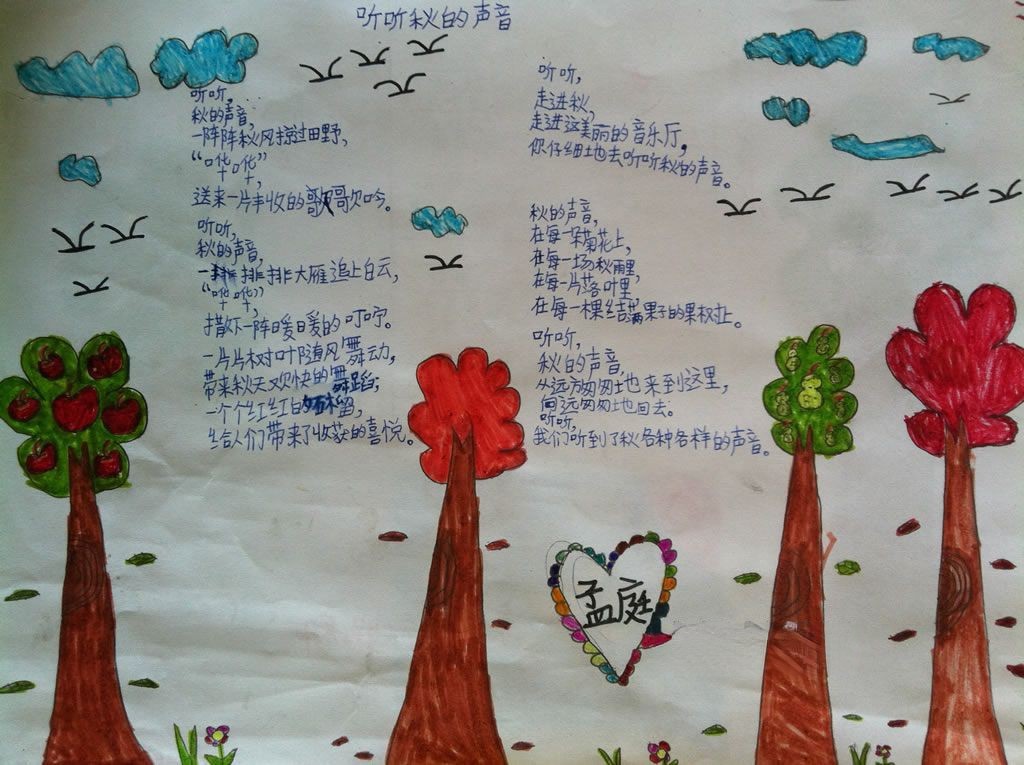 听听秋的声音
听听,
秋的声音,
一阵阵秋风掠过田野,
“哗哗”,
送来一片丰收的歌歌欠吟。
听听,
秋的声音,
一排排大雁追上白云,
“哗哗”,
撒下一阵暖暖的叮咛。
一片片树叶随风舞动,
带来秋天欢快的舞蹈;
一个个红红的石榴,
给人们带来了收获的喜悦。
听听,
走进秋,
走进这美丽的音乐厅,
你仔细地去听听秋的声音。
秋的声音,
在每一朵菊花上,
在每一场秋雨里,
在每一片落叶里,
在每一棵结满果子的果杈上。
听听,
秋的声音,
从远方匆匆地来到这里,
向远匆匆地回去。
听听,
我们听到了秋各种各样的声音。
孟庭